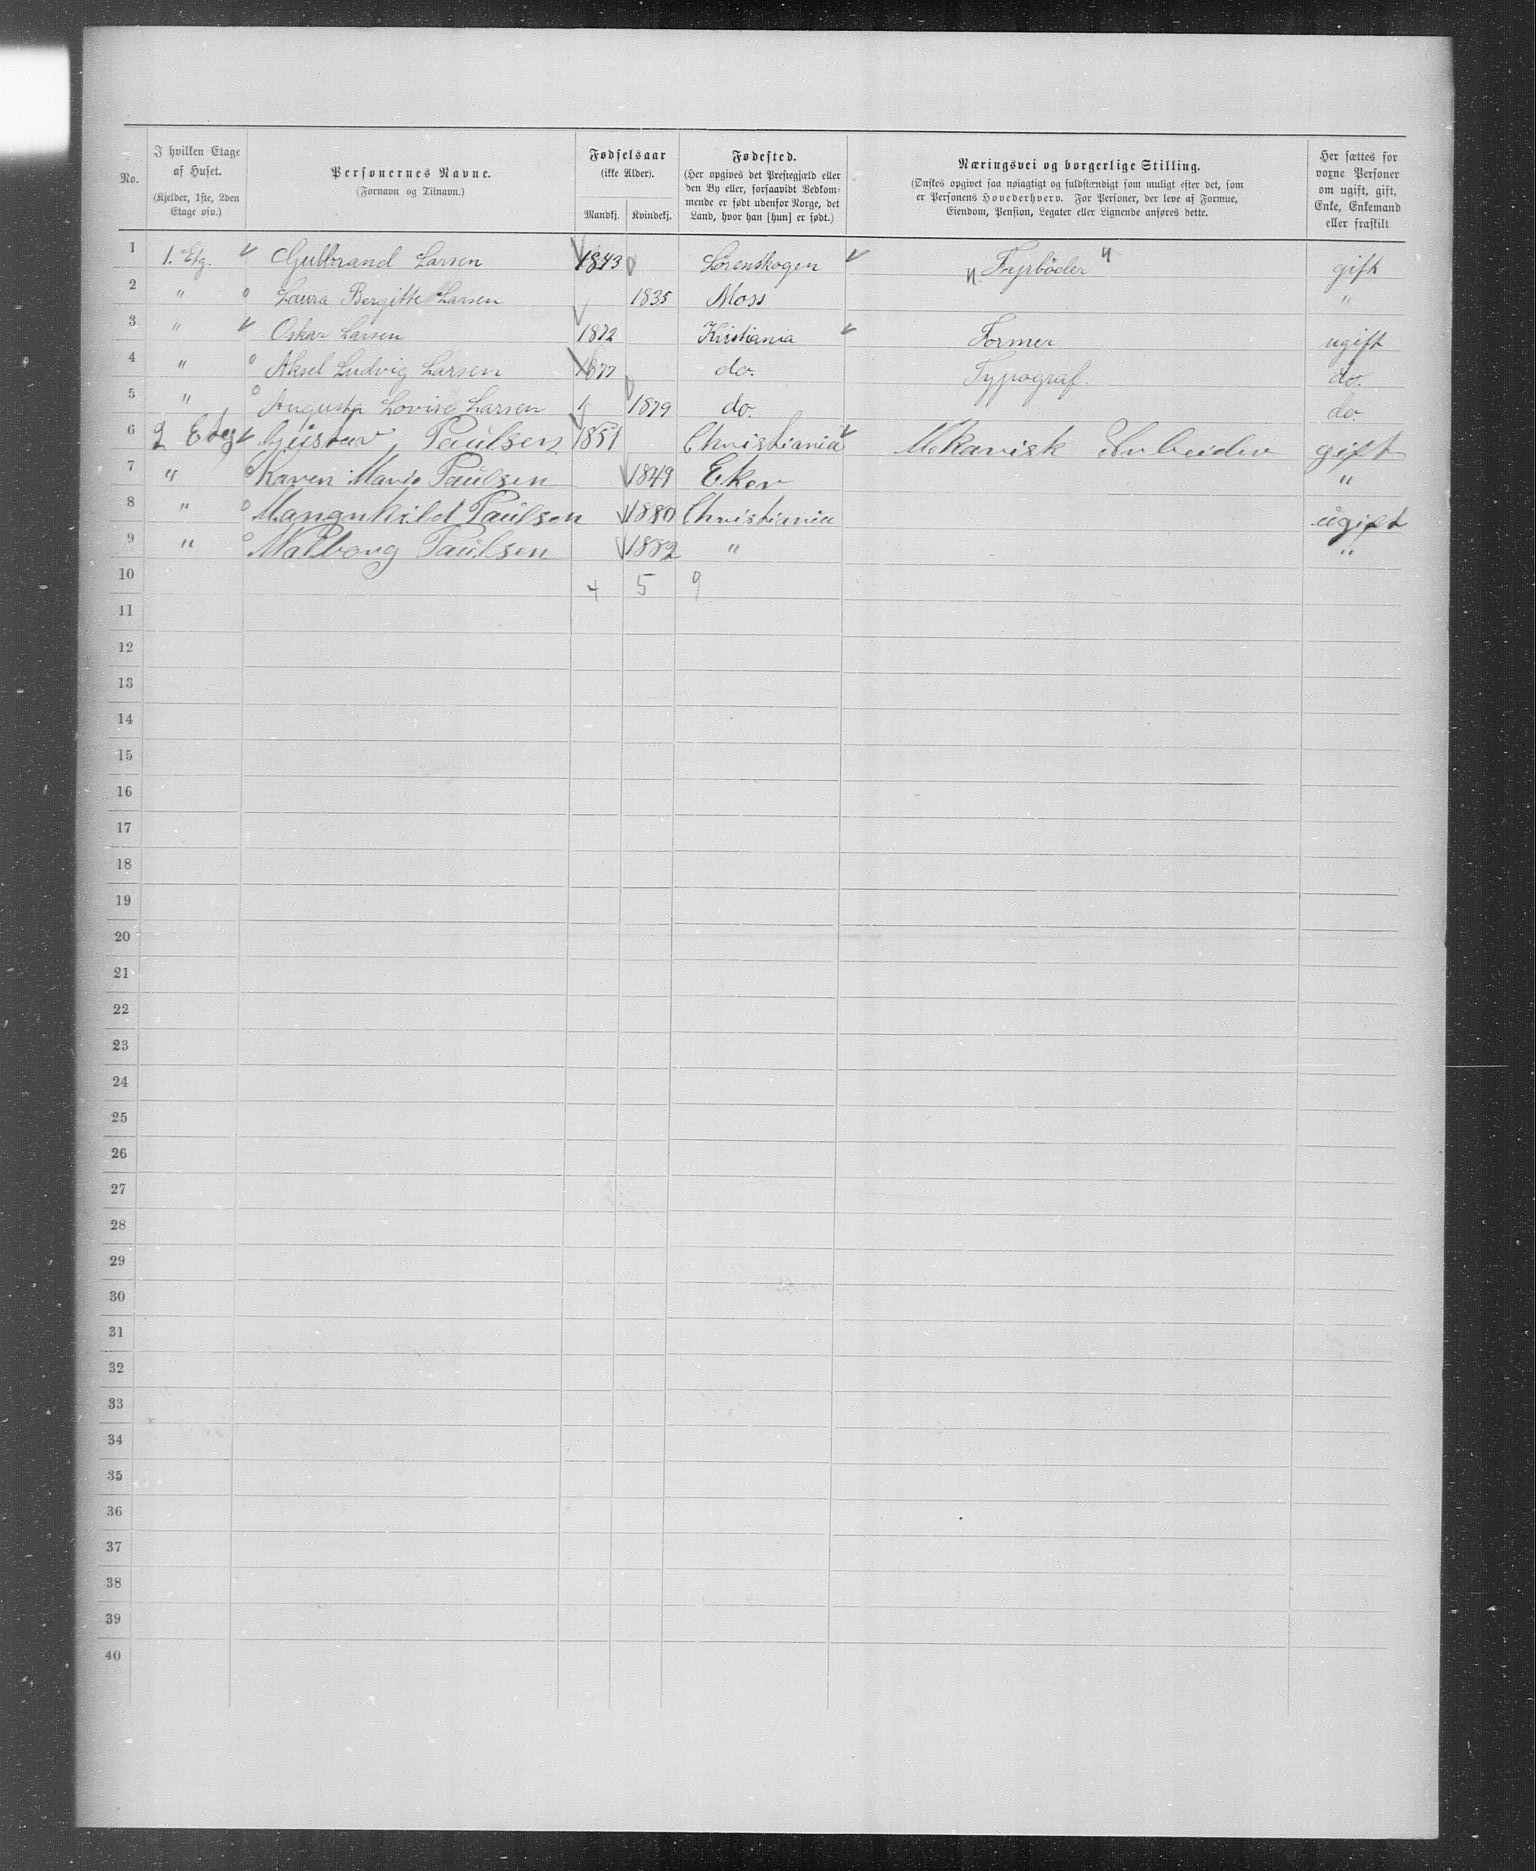 No.
I hvilken Etage af Huset.
(Kjelder, 1ste, 2den Etage osv.)
Personernes Navne.
(Fornavn og Tilnavn.)
Fødselsaar
(ikke Alder).
Mandkj. Kvindekj.
Fødested.
(Her opgives det Prestegjæld eller
den By eller, forsaavidt Vedkom-
mende er født udenfor Norge, det
Land, hvor han [hun] er født.)
Næringsvei og borgerlige Stilling.
(Ønskes opgivet saa nøiagtigt og fuldstændigt som muligt efter det, som
er Personens Hovederhverv. For Personer, der leve af Formue,
Eiendom, Pension, Legater eller Lignende anføres dette.
Her sættes for
voxne Personer
om ugift, gift,
Enke, Enkemand
eller fraskilt
1 1. Etg. Gulbrand Larsen 1843 Lørenskogen Fyrbøder gift
2 " Laura Bergitte Larsen 1835 Moss "
3 " Oskar Larsen 1872 Kristiania Former ugift
4 " Aksel Ludvig Larsen 1877 do. Typograf. do.
5 " Augusta Lovise Larsen 1879 do. do.
6 2 Etg Gustav Paulsen 1851 Christiania Mekanisk Arbeider gift
7 " Karen Marie Paulsen 1849 Eker "
8 " Mangnhild Paulsen 1880 Christiania ugift
9 " Valborg Paulsen 1882 " "
10 4 5 9
11
12
13
14
15
16
17
18
19
20
21
22
23
24
25
26
27
28
29
30
31
32
33
34
35
36
37
38
39
40